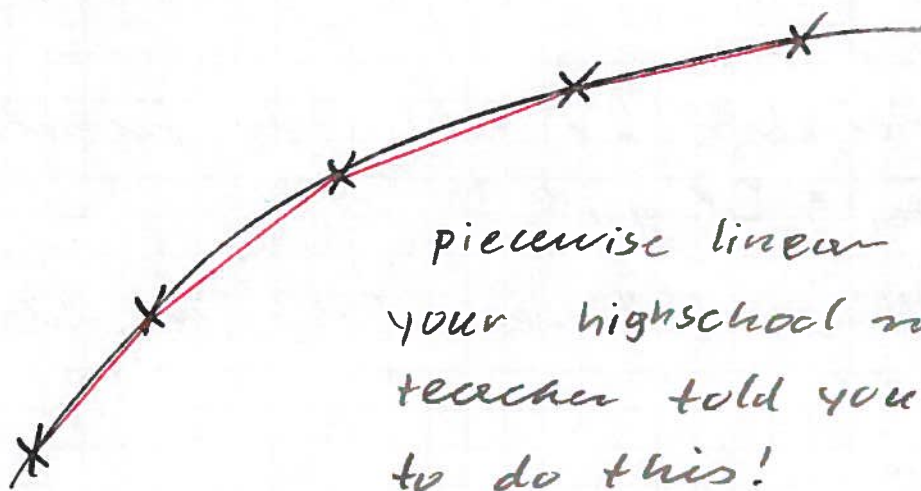 piecewise linear
your highschool
teacher told you
to do this!